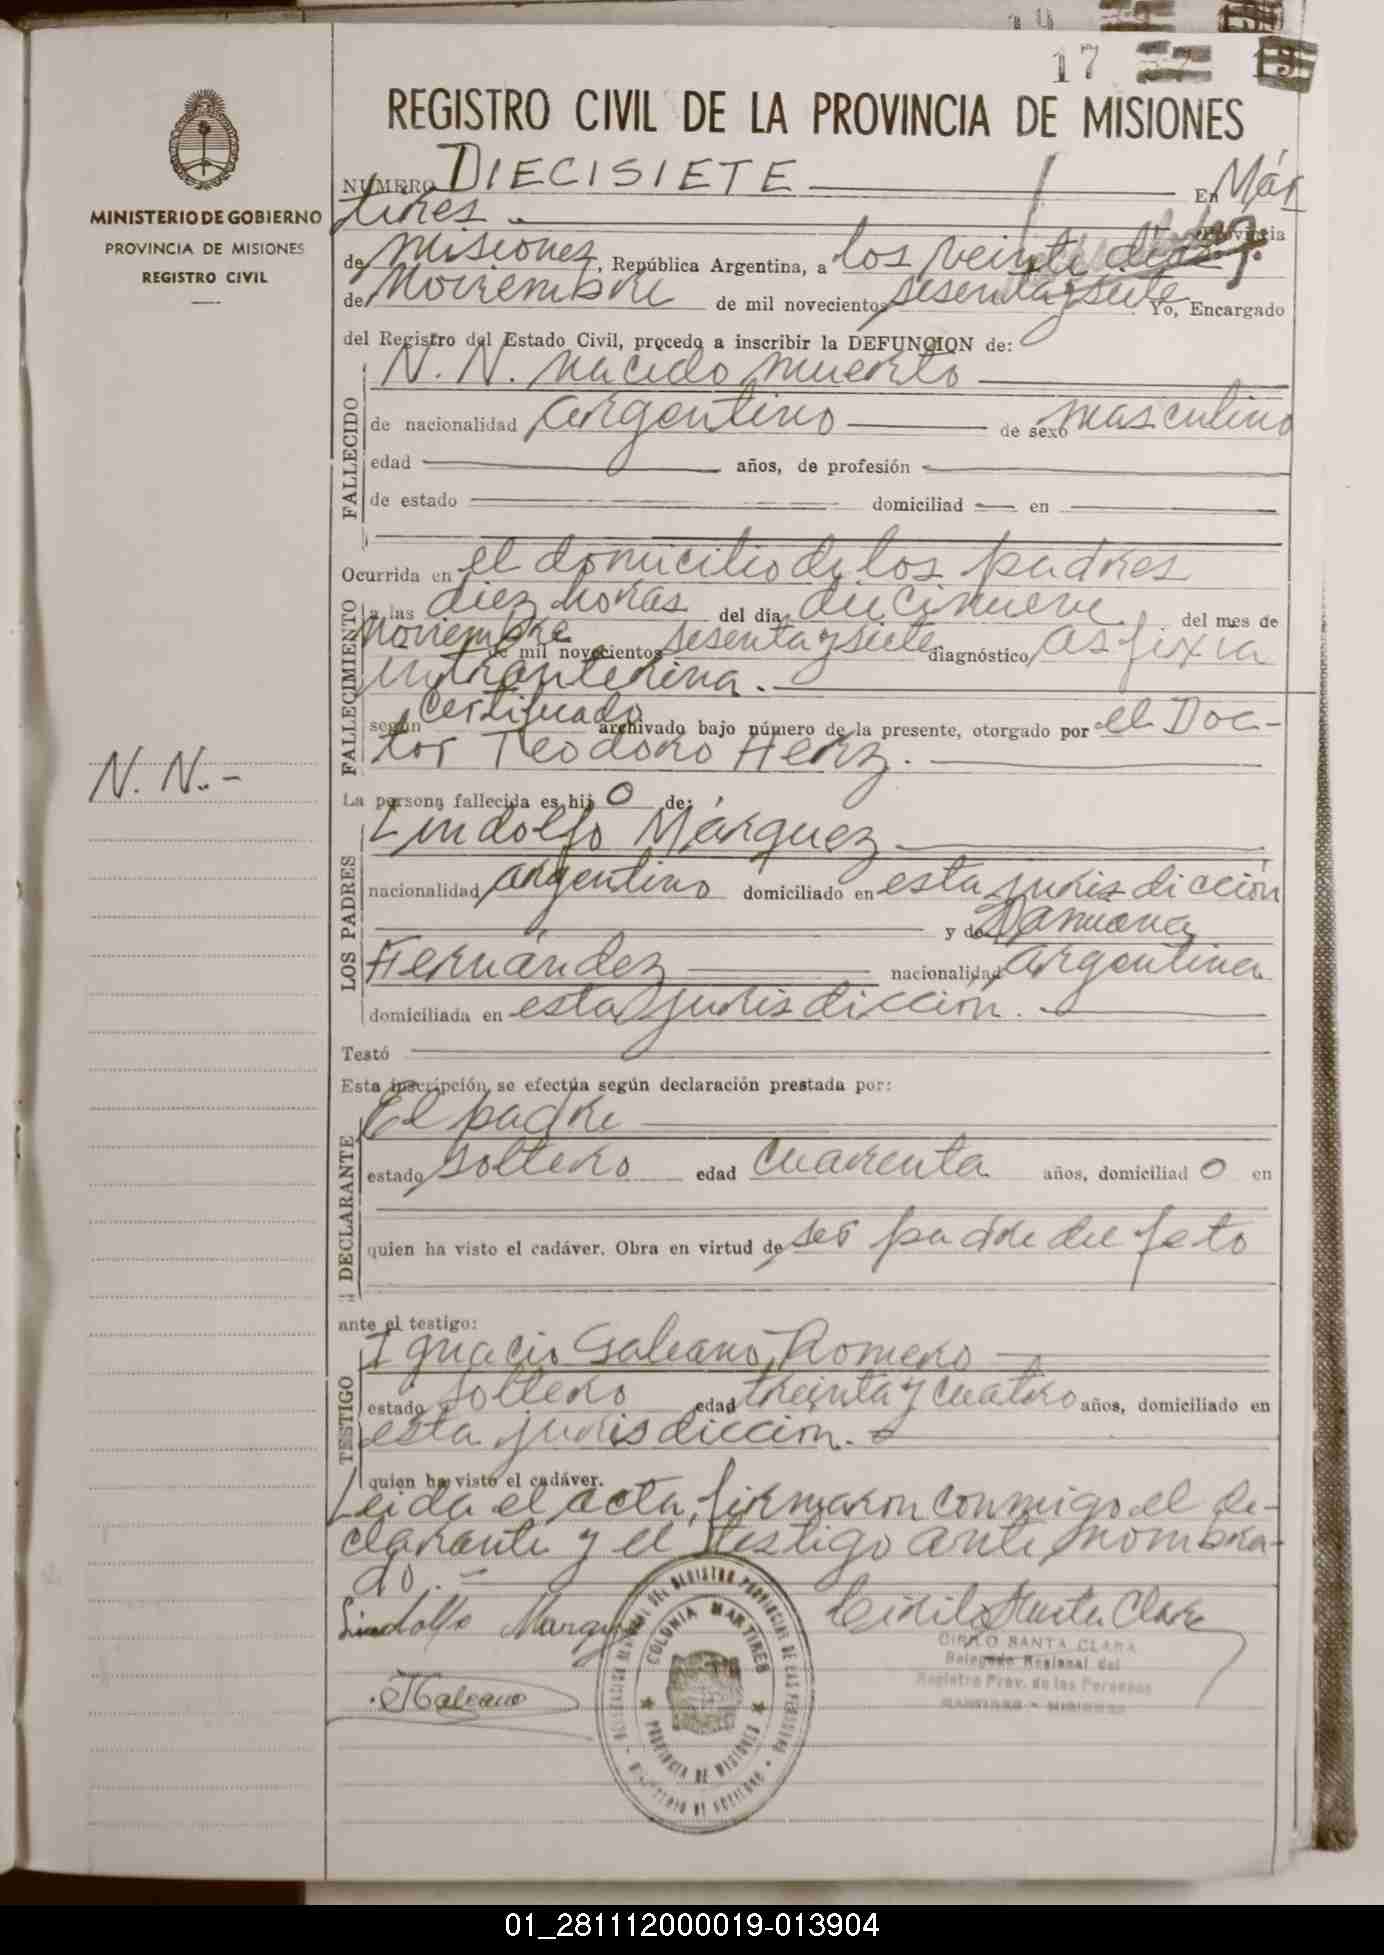 17
REGISTRO CIVIL DE LA PROVINCIA DE MISIONES
MINISTERIO DE GOBIERNO
PROVINCIA DE MISIONES
REGISTRO CIVIL
NUMERO DIECISIETE En Már
tires Provincia
de Misiones, República Argentina, a los veinte días
de Noviembre de mil novecientos sesenta y siete Yo, Encargado
del Registro del Estado Civil, procedo a inscribir la DEFUNCION de:
FALLECIDO
N. N. nacido muerto
de nacionalidad argentino de sexo masculino
edad años, de profesión
de estado domiciliad en
FALLECIMIENTO
Ocurrida en el domicilio de los padres
a las diez horas del día diecinueve del mes de
Noviembre de mil novecientos sesenta y siete diagnóstico asfixia
intrauterina.
según certificado archivado bajo número de la presente, otorgado por el Doc-
tor Teodoro Herz.
N. N.-
La persona fallecida es hij o de:
LOS PADRES
Lindolfo Márquez
nacionalidad argentino domiciliado en esta jurisdicción
y de Ramona
Fernández nacionalidad argentina
domiciliada en esta jurisdicción.
Testó
Esta inscripción se efectúa según declaración prestada por:
DECLARANTE
El padre
estado soltero edad cuarenta años, domiciliad o en
quien ha visto el cadáver. Obra en virtud de ser padre del feto
ante el testigo:
TESTIGO
Ignacio Galeano Romero
estado soltero edad treinta y cuatro años, domiciliado en
esta jurisdicción.
quien ha visto el cadáver.
Leida el acta, firmaron conmigo el de-
clarante y el testigo ante nombra-
do.-
Lindolfo Marquez
Cirilo Santa Clara
CIRILO SANTA CLARA
Delegado Regional del
Registro Prov. de las Personas
MARTIRES - MISIONES
Galeano
COLONIA MARTIRES
PROVINCIA DE MISIONES
01_281112000019-013904